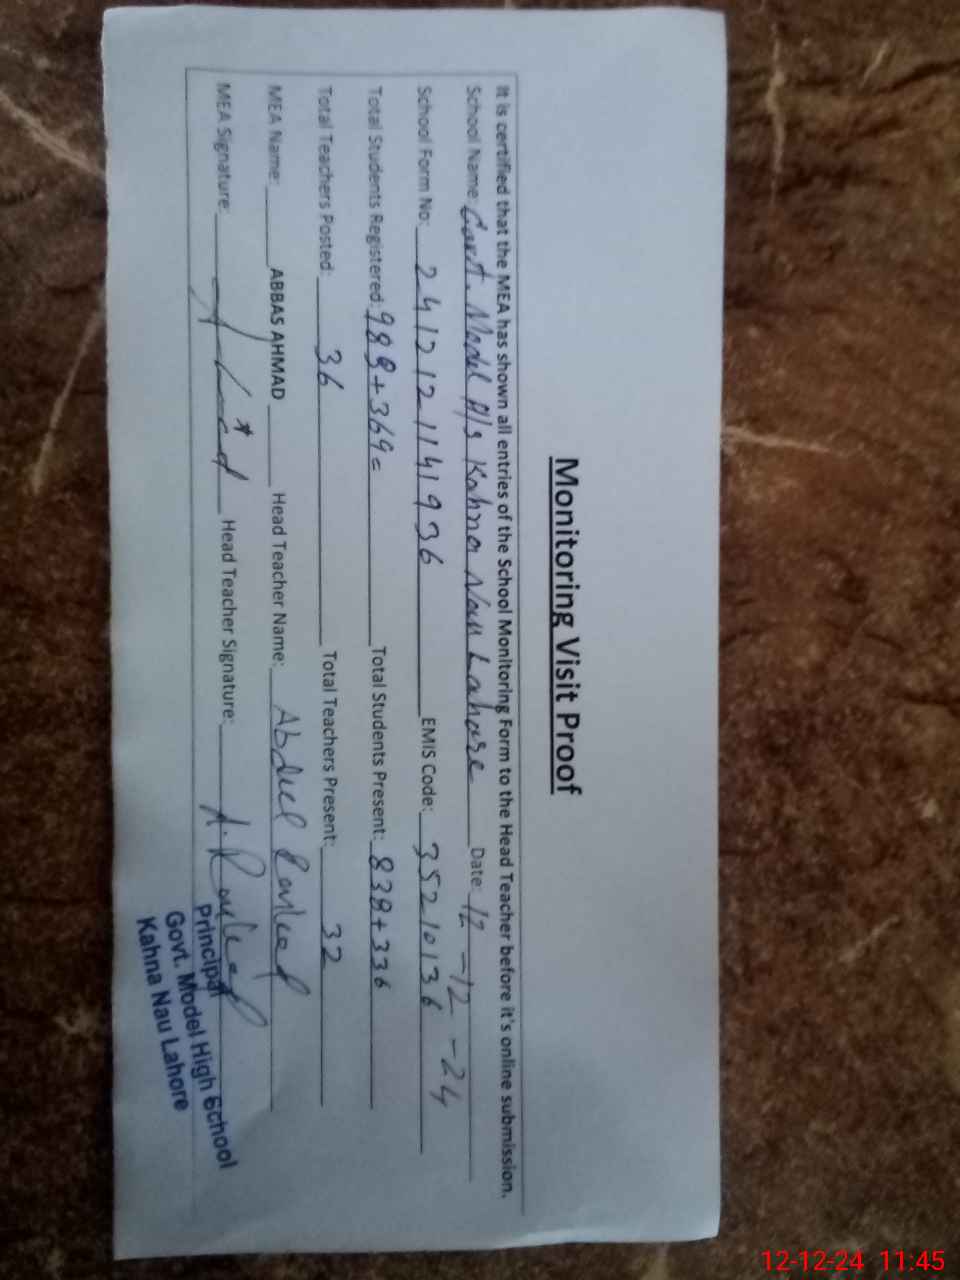 Monitoring Visit Proof
It is certified that the MEA has shown all entries of the School Monitoring Form to the Head Teacher before it's online submission.
School Name: Govt. Model H/s Kahna Nau Lahore Date: 12-12-24
School Form No: 241212141936 EMIS Code: 35210136
Total Students Registered: 989+369= Total Students Present: 839+336
Total Teachers Posted: 36 Total Teachers Present: 32
MEA Name: ABBAS AHMAD Head Teacher Name: Abdul Rasheed
MEA Signature: Head Teacher Signature: A. Rasheed
Principal
Govt. Model High School
Kahna Nau Lahore
12-12-24 11:45